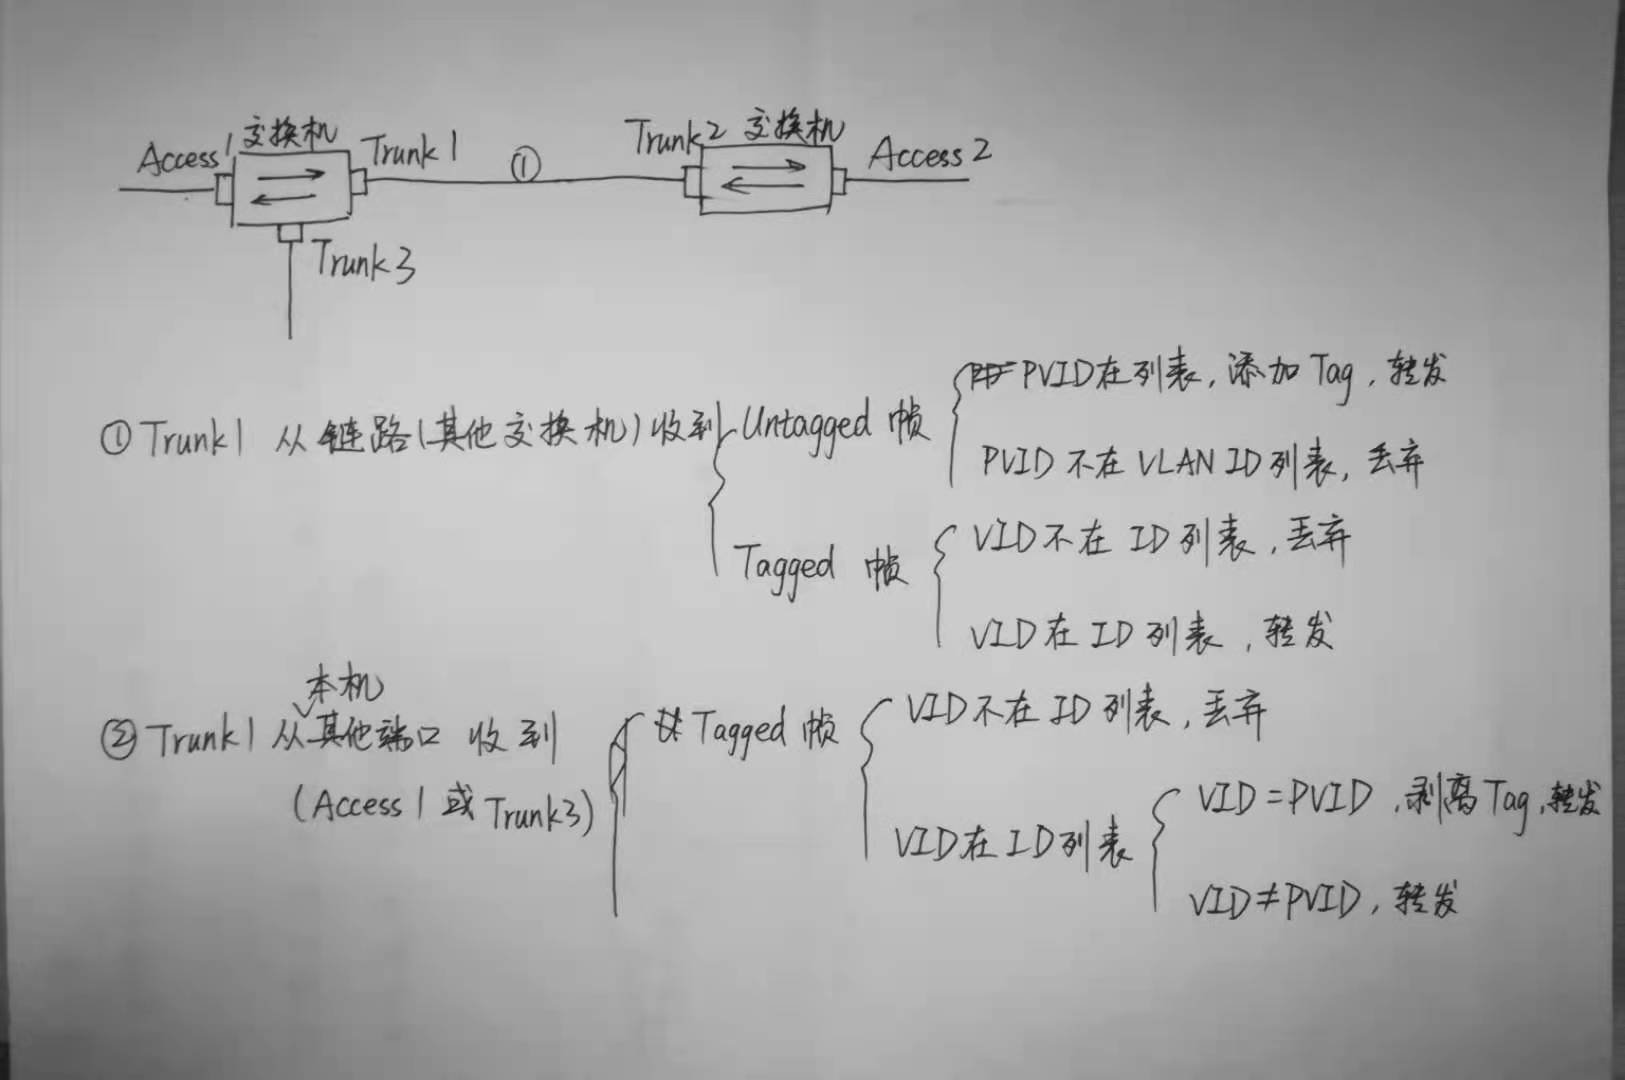 Access1 交换机 Trunk1 ① Trunk2 交换机 Access2
Trunk3
① Trunk1 从链路(其他交换机)收到
Untagged 帧
PVID在列表,添加Tag,转发
PVID 不在 VLAN ID列表,丢弃
Tagged 帧
VID不在 ID列表,丢弃
VID在ID列表,转发
② Trunk1 从本机其他端口 收到
(Access1 或 Trunk3)
Tagged 帧
VID不在ID列表,丢弃
VID在ID列表
VID=PVID,剥离Tag,转发
VID≠PVID,转发